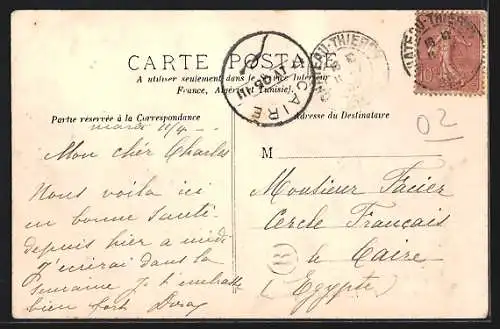 CARTE POSTALE
A utiliser seulement dans le Service Intérieur
France, Algérie, Tunisie).
Partie réservée à la Correspondance
Adresse du Destinataire
CHATEAU-THIERRY
CHATEAU-THIERRY
CAIRE
10
02
mardi 11/4
Mon chér Charles
Nous voila ici
en bonne santé
depuis hier a midi
J'écrirai dans la
semaine je t'embrasse
bien fort
M
Monsieur Facier
Cercle Français
le Caire
(Egypte)
(B)